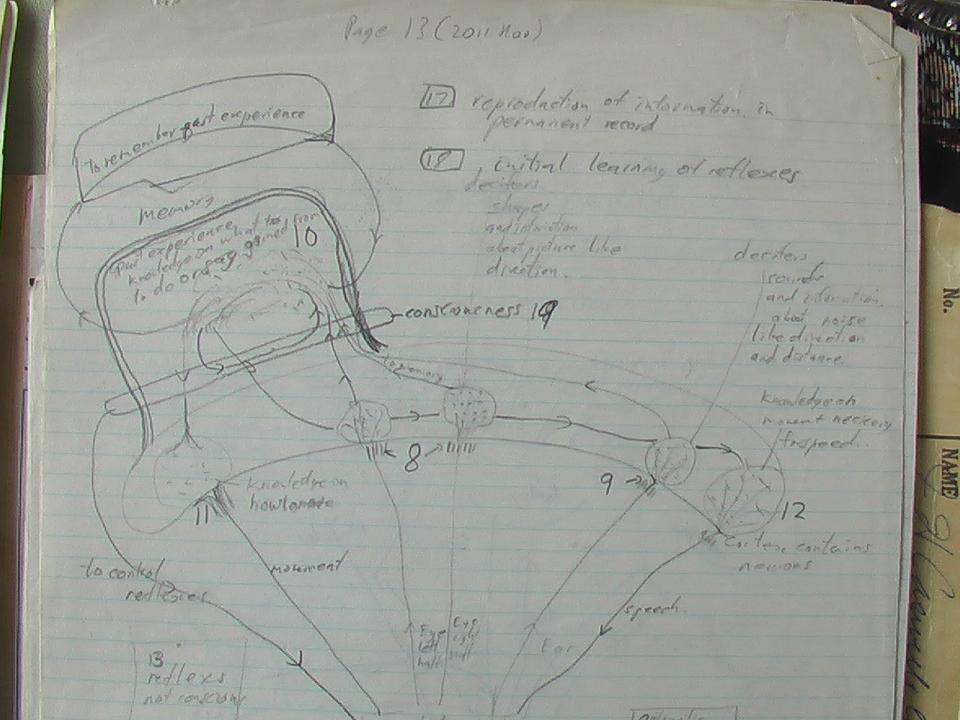 Page 13 (2011 Nov)
17 reproduction of information in
permanent record
18 initial learning of reflexes
To remember past experience
memory
past experience
knowledge on what
to do or say gained from
10
deciters
shapes
and information
about picture like
direction.
deciters
sounds
and information
about noise
like direction
and distance
consciousness 19
to memory
knowledge on
movement neccesary
for speech.
8
9
12
11
knowledge on
how to move
Cortex contains
neurons
to control
reflexes
movement
speech
Eye
left
half
Eye
right
half
Ear
13
reflexs
not conscious
No.
NAME